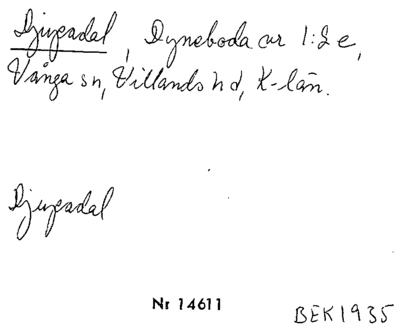 Djupadal, Dyneboda av 1:2 e,
Vånga sn, Villands hd, K-län.
Djupadal
Nr 14611
BEK 1935